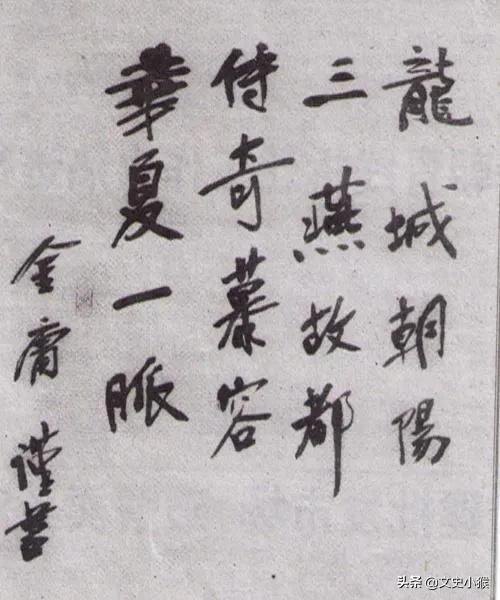 龍城朝陽
三燕故都
传奇慕容
華夏一脈
金庸 谨書
头条 @文史小猴